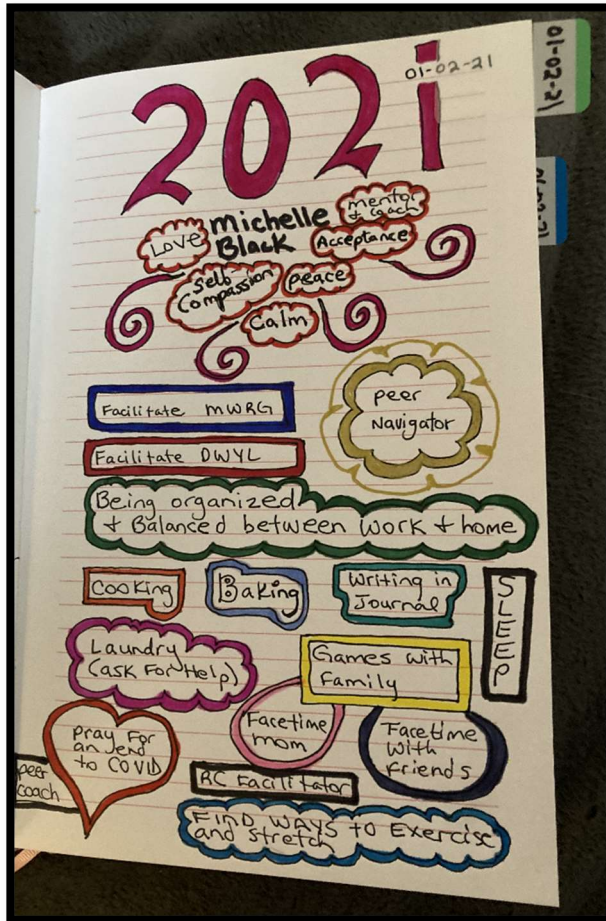 2021
01-02-21
01-02-21
Michelle
Black
Love
mentor
& coach
Acceptance
Self
Compassion
peace
Calm
Facilitate MWRG
peer
Navigator
Facilitate DWYL
Being organized
& Balanced between work & home
Cooking
Baking
Writing in
Journal
SLEEP
Laundry
(ask For Help)
Games with
Family
Facetime
mom
Facetime
with
Friends
pray For
an end
to COVID
peer
coach
RC Facilitator
FIND WAYS to Exercise
and stretch